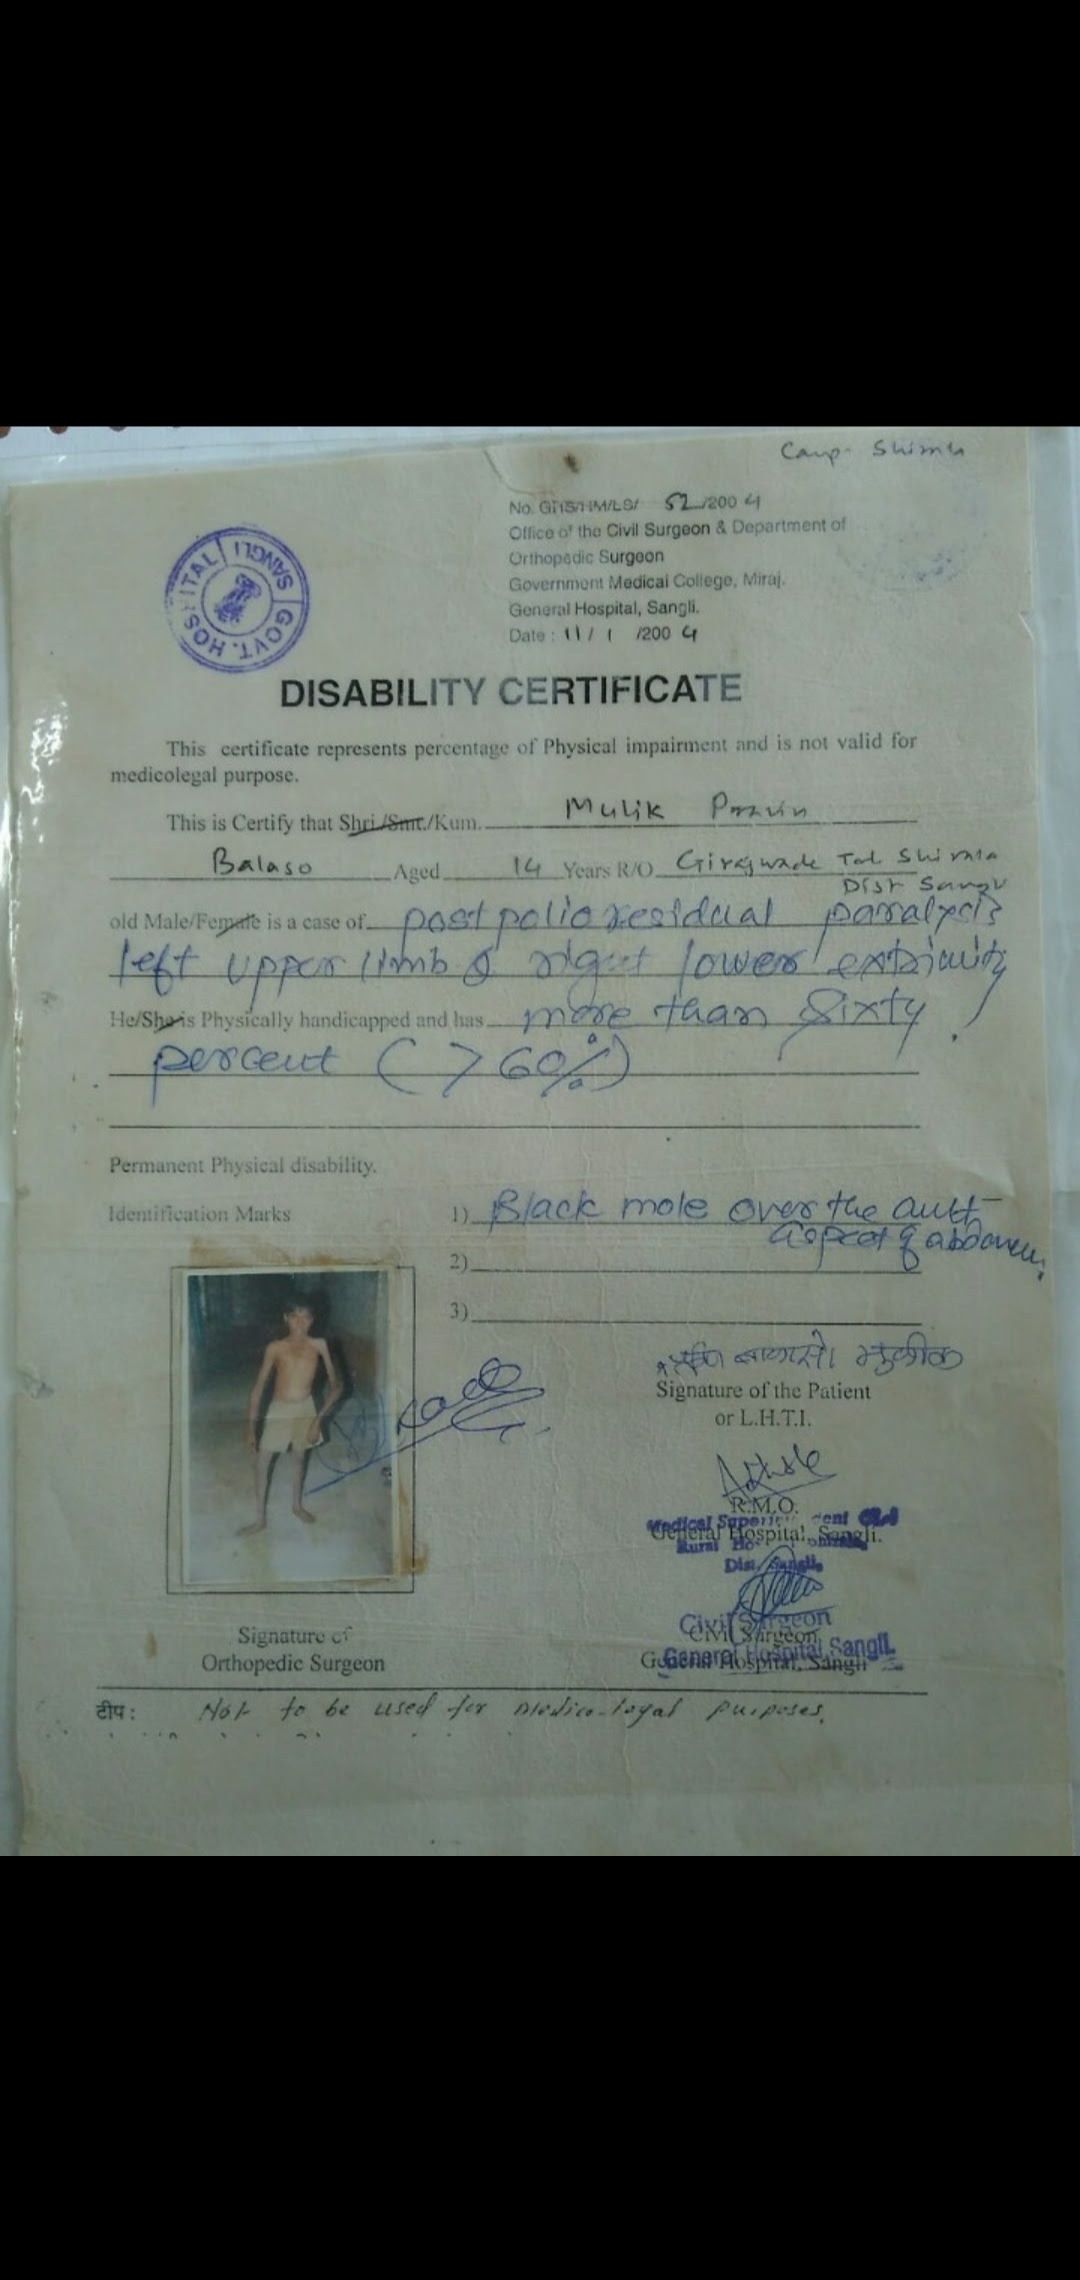 Camp- Shirala
GOVT. HOSPITAL SANGLI
No. GHS/HM/LS/ 52/2004
Office of the Civil Surgeon & Department of
Orthopedic Surgeon
Government Medical College, Miraj.
General Hospital, Sangli.
Date : 11 / 1 /2004
DISABILITY CERTIFICATE
This certificate represents percentage of Physical impairment and is not valid for
medicolegal purpose.
This is Certify that Shri./Smt./Kum. Mulik Pravin
Balaso Aged 14 Years R/O Girajwade Tal. Shirala
Dist Sangli
old Male/Female is a case of post polio residual paralysis
left upper limb & right lower
He/She is Physically handicapped and has more than sixty
percent ( > 60%)
Permanent Physical disability.
Identification Marks
1) Black mole over the
aspect of abdomen.
2)
3)
बाळासो मुळीक
Signature of the Patient
or L.H.T.I.
R.M.O.
General Hospital, Sangli.
Medical Superintendent
Rural
Dist. Sangli.
Civil Surgeon
Civil Surgeon
General Hospital Sangli.
General Hospital, Sangli
Signature of
Orthopedic Surgeon
टीप : Not to be used for medico-legal purposes.